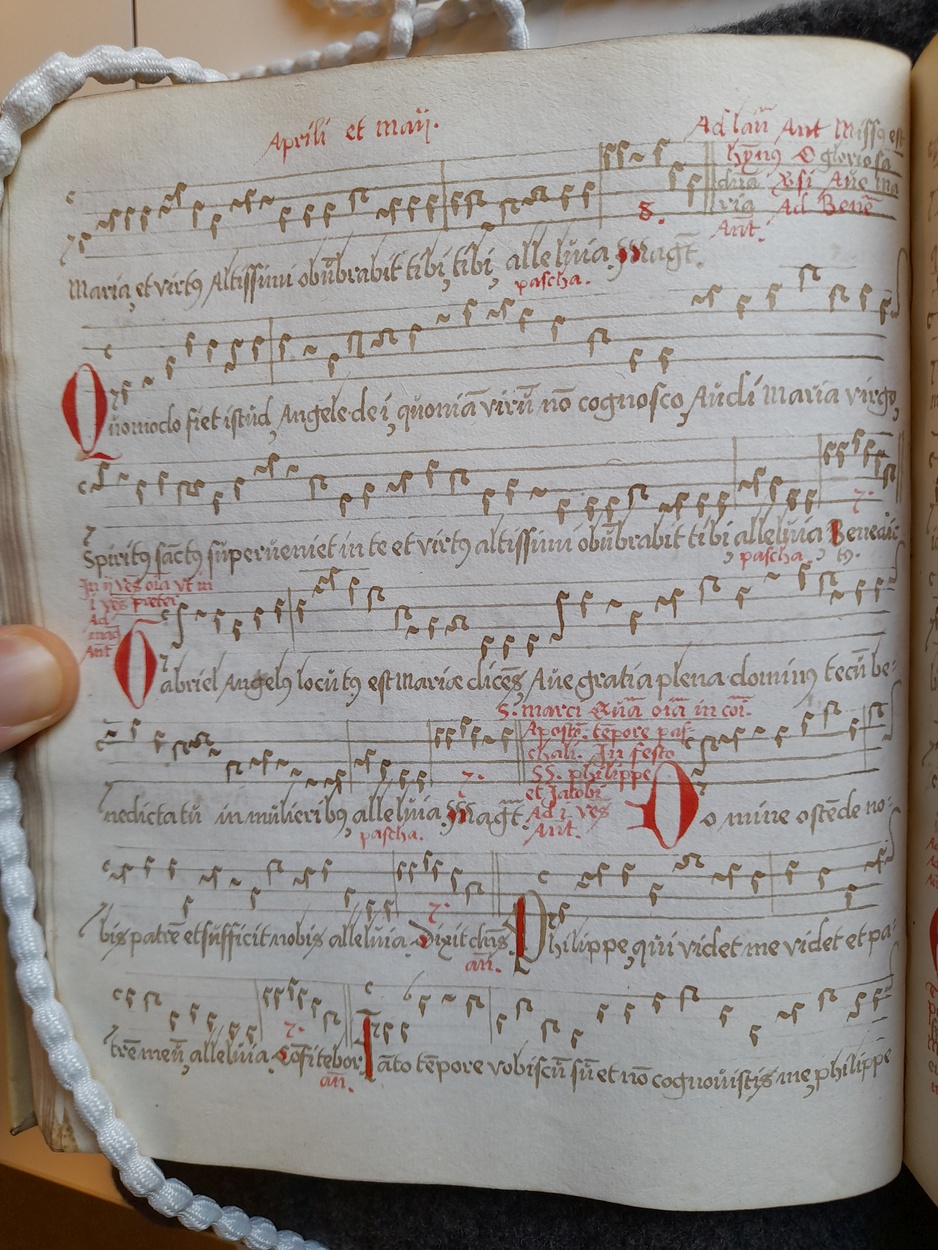 Aprili et maij.
Ad laū Ant Missꝯ est
hȳnꝯ O gloriosa
dn̄a ℟si Aūe ma
ria Ad Bene
Ant.
8.
Maria, et virtꝯ Altissimi obūbrabit tibi, tibi, alleluia. Magt̄.
pascha.
Quomodo fiet istud, Angele dei, quoniā virū nō cognosco, Audi Maria virgo,
Spiritꝯ sāctꝯ superueniet in te et virtꝯ altissimi obūbrabit tibi alleluia, Benedic
7.
pascha
tꝯ.
In ij ves̄ oīa vt in
i ves̄ preter
Ad
mag
Ant
Gabriel Angelꝯ locutꝯ est Mariæ dicēs, Aue gratia plena dominꝯ tecū be-
S. marci Euā oīā in cōi.
Apostō. tēpore pas-
chali. In festo
SS. philippe
et Jacobi
Ad i ves̄
Ant.
nedicta tu in mulieribꝯ, alleluia. Magt̄.
7.
pascha.
Domine ostēde no-
bis patrē et sufficit nobis alleluia. Dixit dn̄s.
7.
añ.
Philippe, qui videt me videt et pa-
trē meū, alleluia. Cōfitebor.
7.
añ.
Tāto tēpore vobiscū sū et nō cognouistis me, philippe